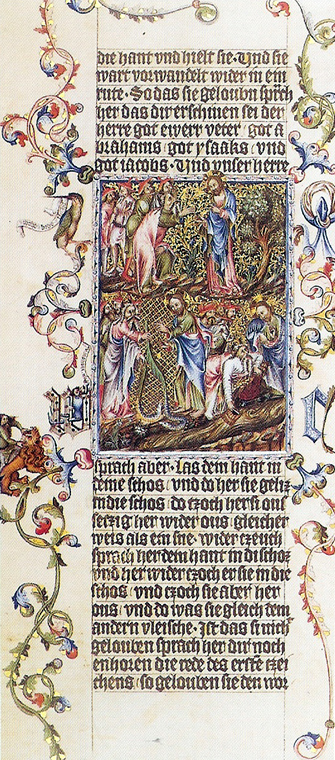 die hant vnd hielt sie · Vnd sie
wart vorwandelt wider in ein
rute · So das sie geloubn sprch
her das dir erschinen sei der
herre got ewerr veter · got a
brahams · got ysaaks · vnd
got iacobs · Vnd vnser herre
sprach aber · Las dem hant in
deine schos · vnd do her sie
in die schos · do czoch her sie ous
her wider ous gleicher
weis als ein sne · wider czeuch
sprach her dein hant in di schoz
vnd her wider czoch er sie in die
schos · vnd czoch sie aber her
ous · vnd do was sie gleich dem
andern vleische · Ist das si nicht
gelouben sprach her dir noch
enhoren die rede des erste czei
chens · so gelouben sie den wor